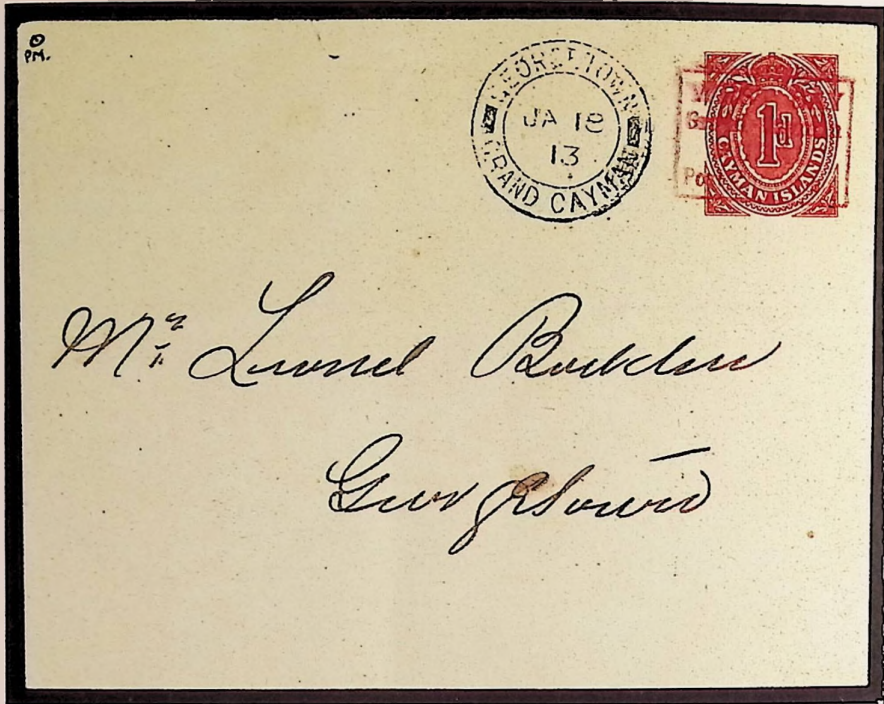 PM.
GEORGETOWN
JA 18
13
GRAND CAYMAN
1d
CAYMAN ISLANDS
Po
Mr Lionel Bodden
Georgetown